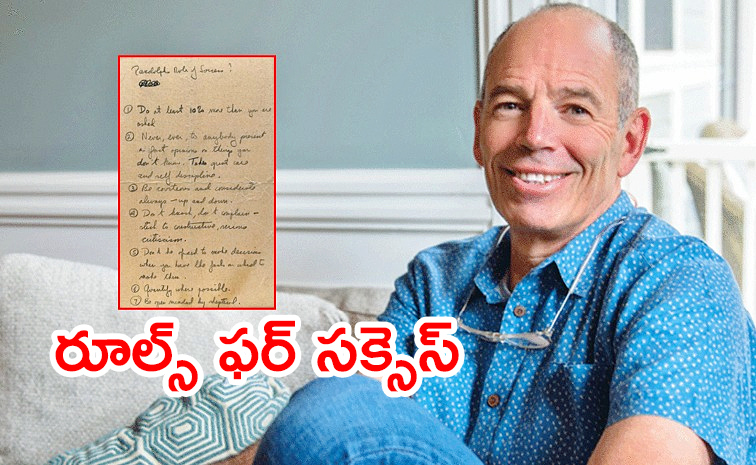 Randolph Rule of Success?
① Do at least 10% more than you are
asked
② Never, ever, to anybody present
as fact opinions on things you
don't know. Takes great care
and self discipline.
③ Be courteous and considerate
always - up and down.
④ Don't knock, don't complain -
stick to constructive, serious
criticism.
⑤ Don't be afraid to make decisions
when you have the facts on which to
make them.
⑥ Quantify where possible.
⑦ Be open minded but skeptical.
రూల్స్ ఫర్ సక్సెస్